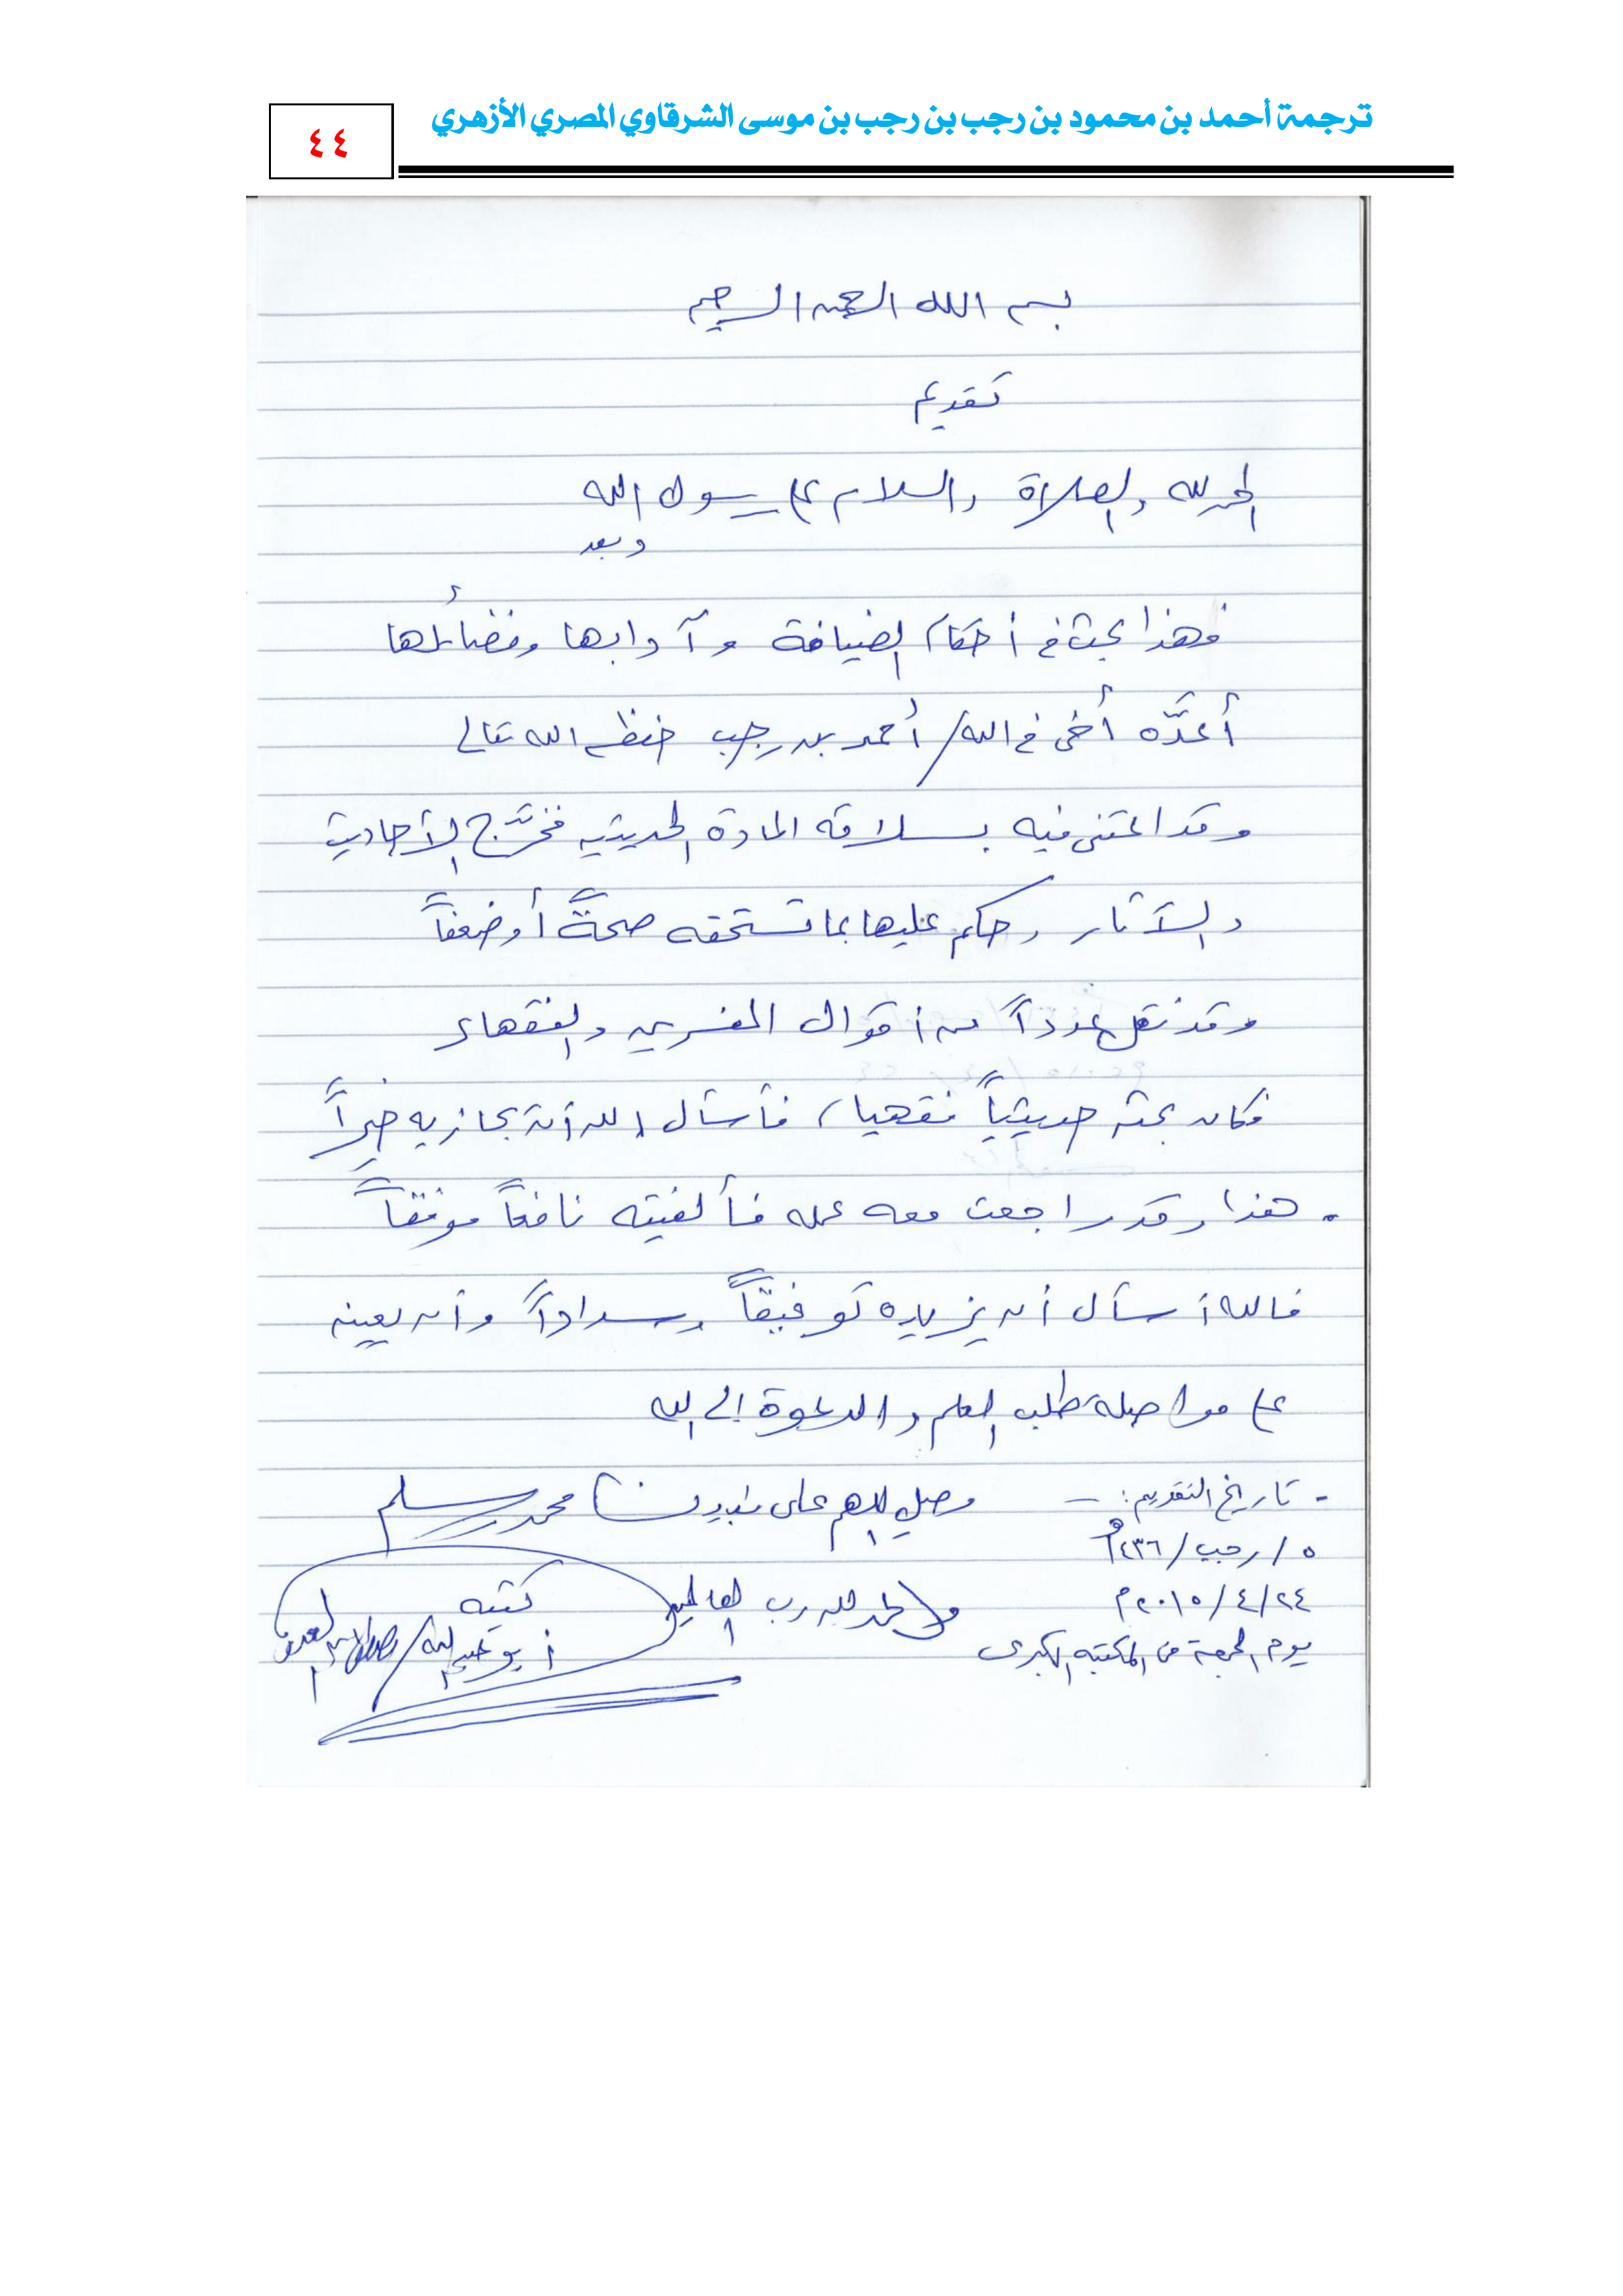 ترجمة أحمد بن محمود بن رجب بن رجب بن موسى الشرقاوي المصري الأزهري
٤٤
بسم الله الرحمن الرحيم
تقديم
الحمد لله والصلاة والسلام على رسول الله
وبعد
فهذا بحث في أحكام الضيافة وآدابها وفضائلها
أعدَّه أخي في الله/ أحمد بن رجب حفظه الله تعالى
وقد اعتنى فيه بسلامة المادة الحديثية فخرَّج الأحاديث
والآثار وحكم عليها بما تستحقه صحةً أو ضعفاً
وقد نقل عدداً من أقوال المفسرين والفقهاء
فكان بحثه حديثياً فقهيا، فأسأل الله أن يجازيه خيراً
. هذا وقد راجعت معه عمله فألفيته نافعاً موفقاً
فالله أسأل أن يزيده توفيقاً وسداداً وأن يعينه
على مواصلة طلب العلم والدعوة إلى الله
وصلي اللهم على نبينا محمد وسلم
والحمد لله رب العالمين
- تاريخ التقديم: -
٥/رجب/١٤٣٦هـ
٢٤/٤/٢٠١٥م
يوم الجمعة في المكتبة الكبرى
كتبه
أبو عبد الله/ العدوي